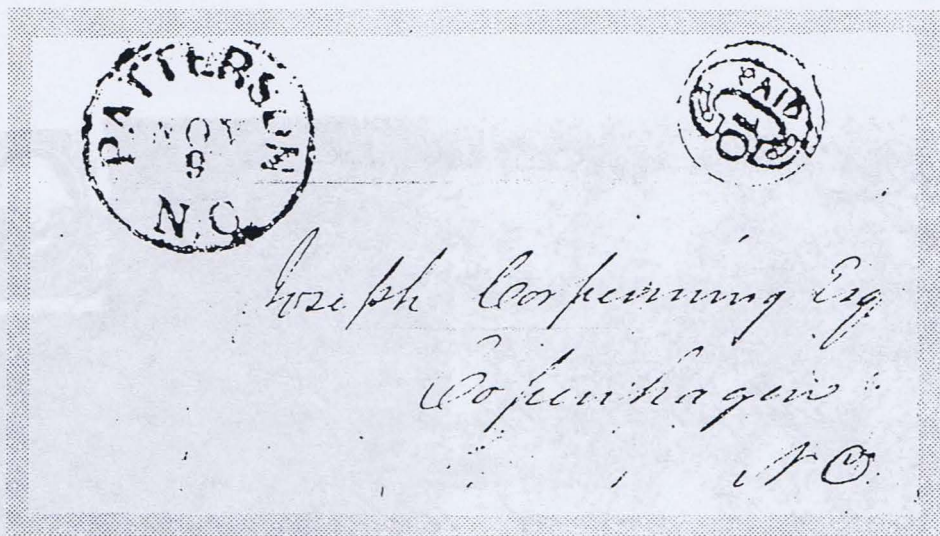 PATTERSON
NOV
9
N.C.
PAID
10
Joseph Corpenning Esq
Copenhagen
N C.